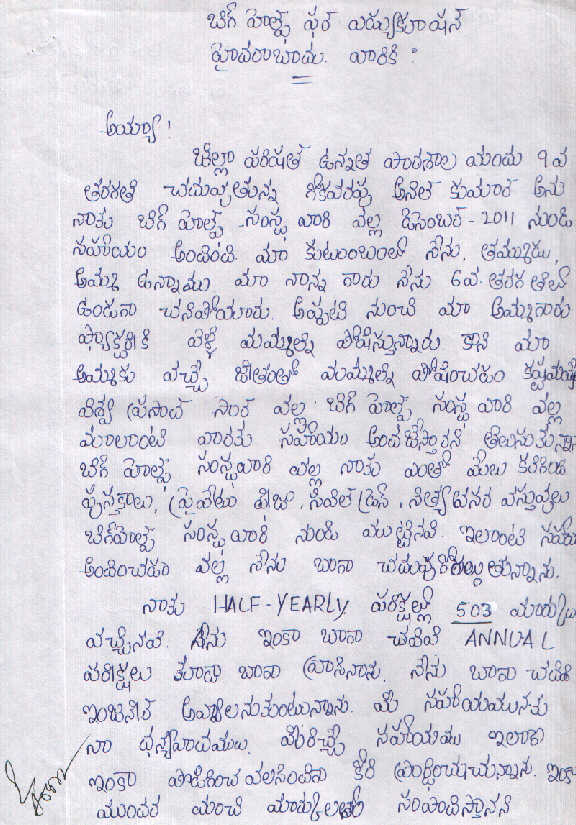 బిగ్ హెల్ప్ ఫర్ ఎడ్యుకేషన్
హైదరాబాదు. వారికి :
అయ్యా !
జిల్లా పరిషత్ ఉన్నత పాఠశాల యందు 9 వ
తరగతి చదువుతున్న అనిల్ కుమార్ అను
నాకు బిగ్ హెల్ప్ సంస్థ వారి వల్ల డిసెంబర్ - 2011 నుండి
సహాయం అందింది. మా కుటుంబంలో నేను, తమ్ముడు,
అమ్మ ఉన్నాము మా నాన్న గారు నేను 6వ. తరగతిలో
ఉండగా చనిపోయారు. అప్పటి నుంచి మా అమ్మగారు
ఫ్యాక్టరీకి వెళ్లి మమ్మల్ని పోషిస్తున్నారు కాని మా
అమ్మకు వచ్చే జీతంతో మమ్మల్ని పోషించడం
ప్రసాద్ సార్ వల్ల బిగ్ హెల్ప్ సంస్థ వారి వల్ల
మాలాంటి వారికి సహాయం
బిగ్ హెల్ప్ సంస్థవారి వల్ల నాకు ఎంతో మేలు కలిగింది
పుస్తకాలు, ప్రైవేటు ఫీజు, సివిల్ డ్రస్, నిత్యావసర వస్తువులు
బిగ్‌హెల్ప్ సంస్థ వారి నుండి ముట్టినవి. ఇలాంటి
అందించడం వల్ల నేను బాగా
నాకు HALF-YEARLY పరీక్షల్లో 503 మార్కులు
వచ్చినవి. నేను ఇంకా బాగా చదివి ANNUAL
పరీక్షలు కూడా బాగా వ్రాసినాను. నేను బాగా చదివి
ఇంజనీర్ అవ్వాలనుకుంటున్నాను. మీ సహాయమునకు
నా ధన్యవాదములు. మీరిచ్చే సహాయము ఇలాగే
ఇంకా కోరి ప్రార్థించుచున్నాను. ఇంకా
ముందర మంచి మార్కులతో సంపాదిస్తానని